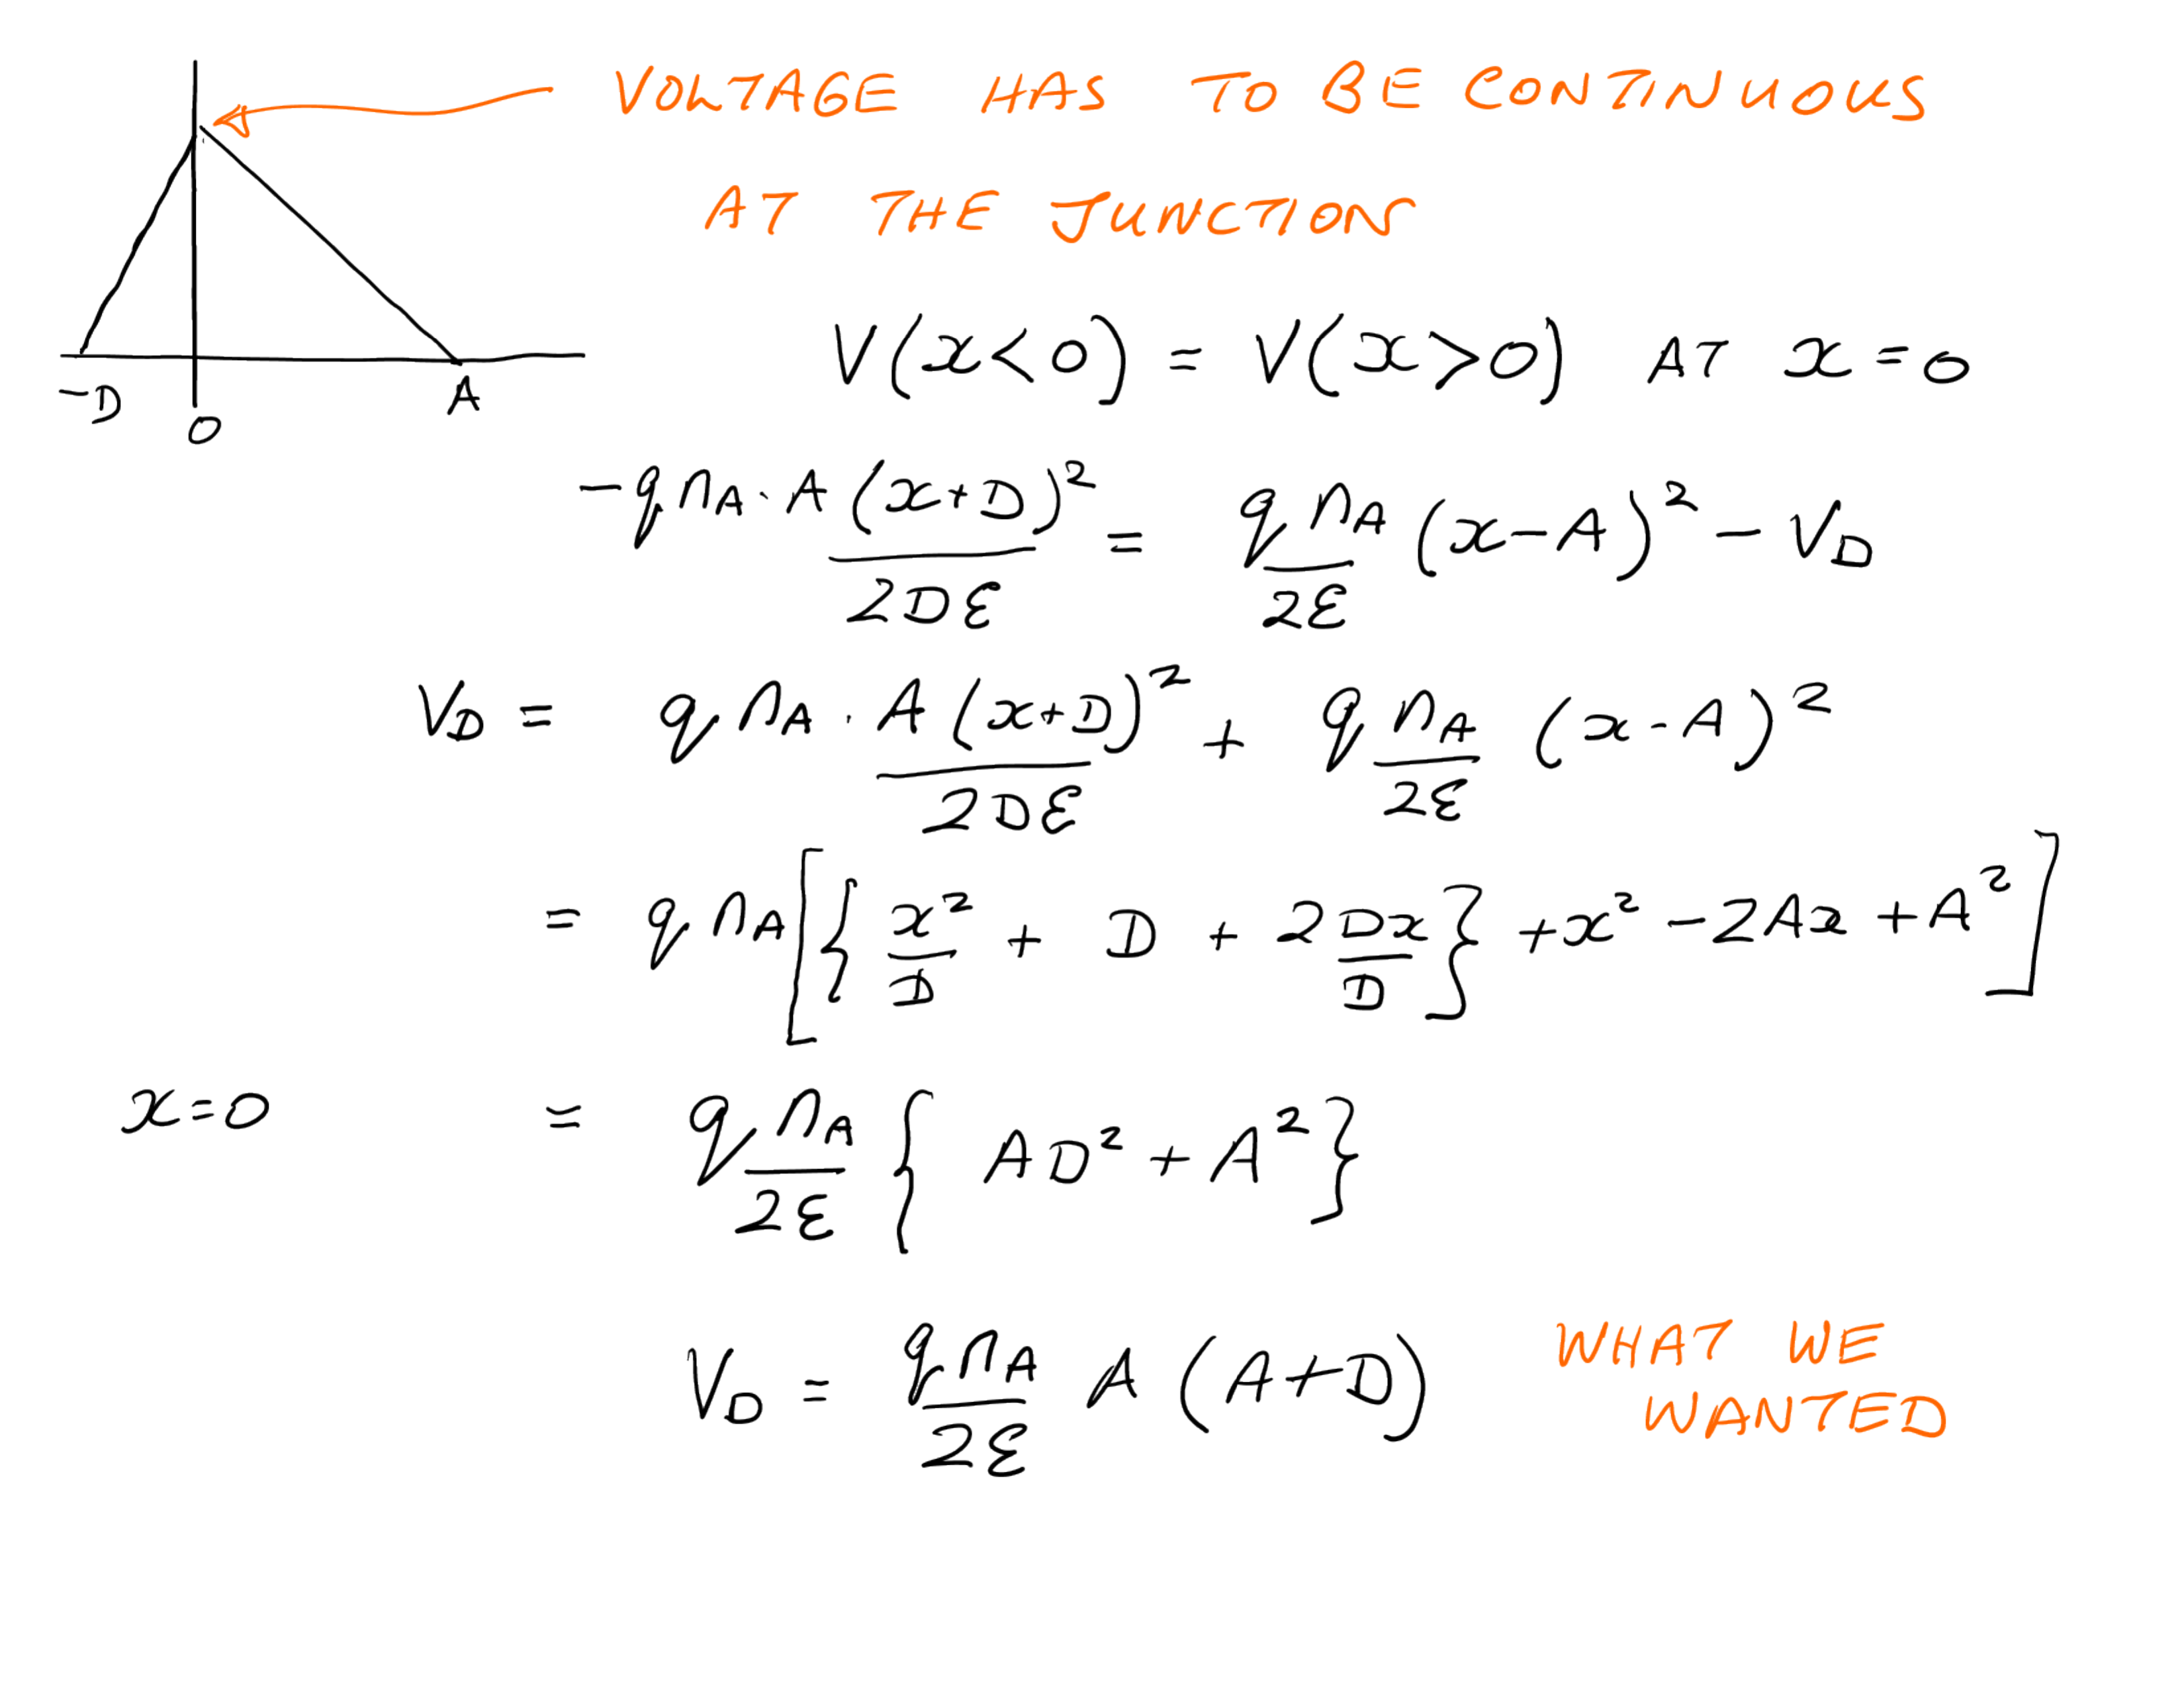 VOLTAGE HAS TO BE CONTINUOUS
AT THE JUNCTION
-D O A
V(x<0) = V(x>0) AT x=0
-q n_A · A (x+D)² / 2Dε = q n_A / 2ε (x-A)² - V_D
V_D = q n_A · A (x+D)² / 2Dε + q n_A / 2ε (x-A)²
= q n_A [ { x²/D + D + 2Dx/D } + x² - 2Ax + A² ]
x=0 = q n_A / 2ε { AD² + A² }
V_D = q n_A / 2ε A (A+D)
WHAT WE
WANTED